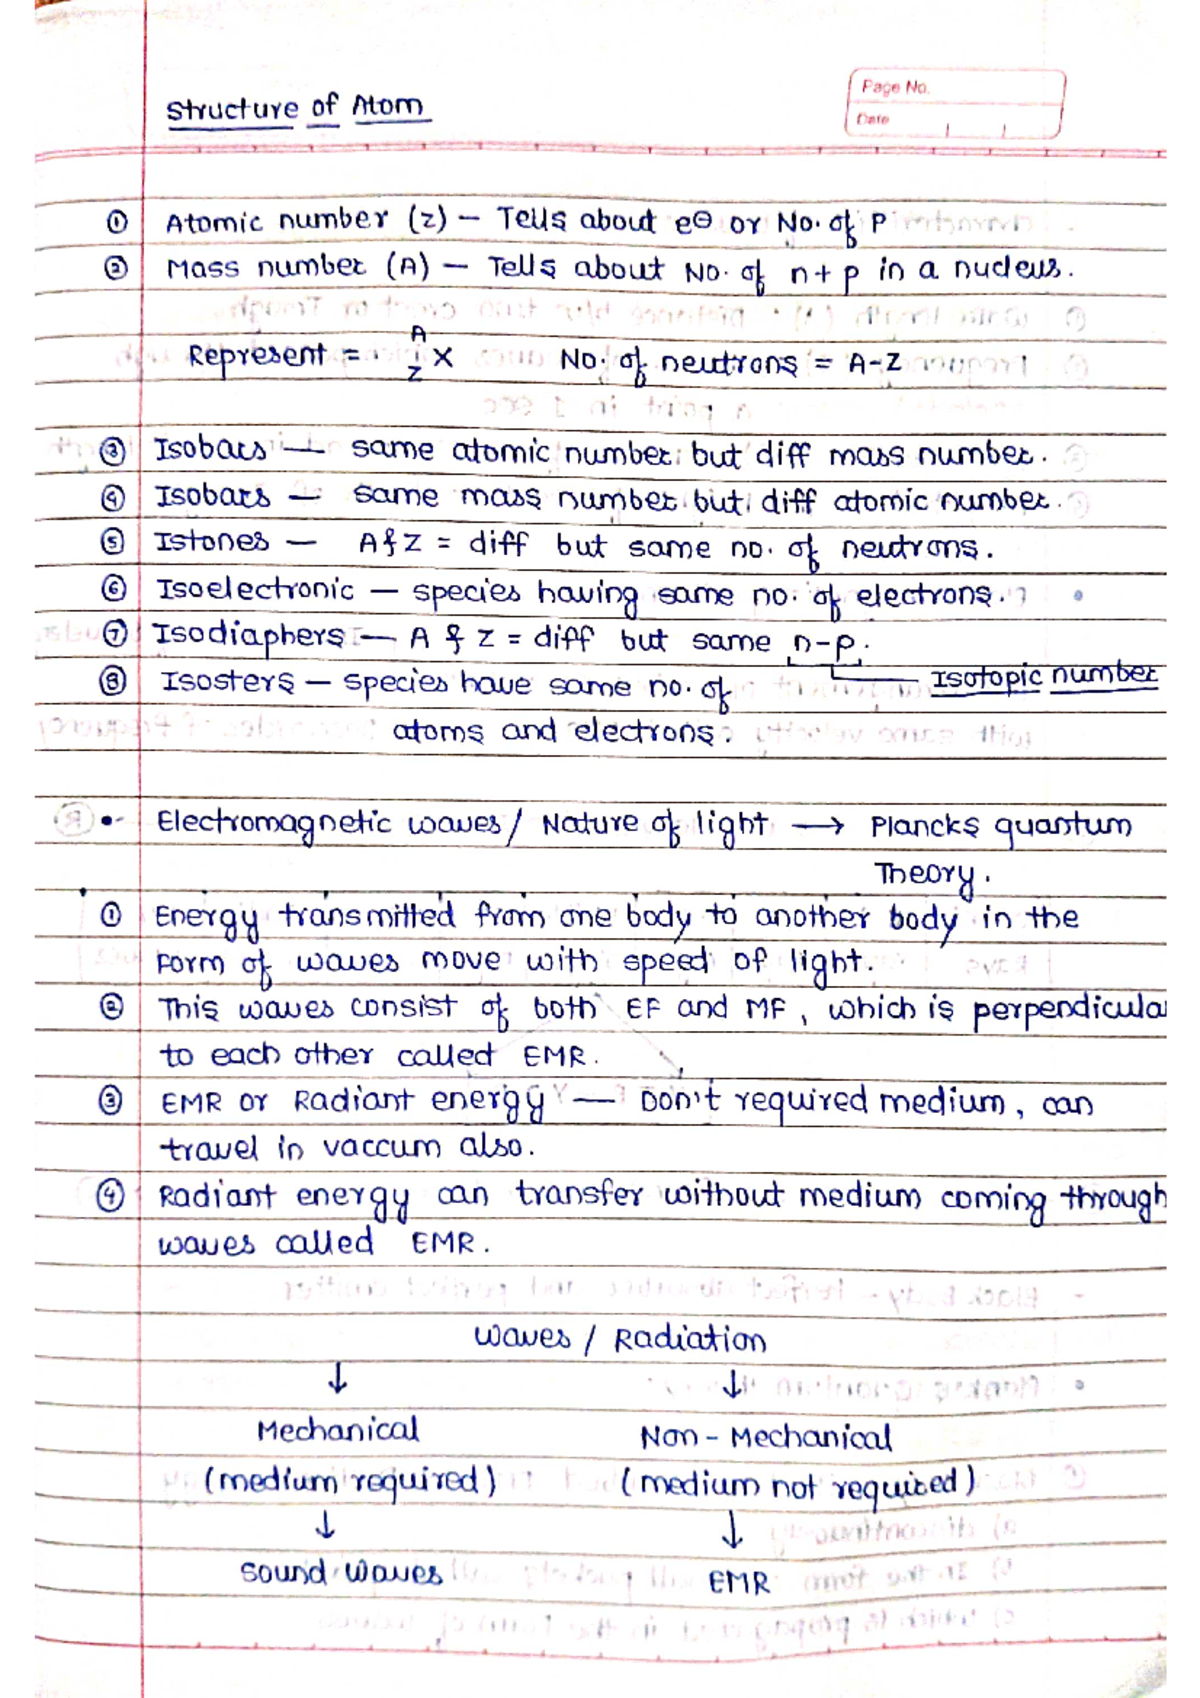 Structure of Atom
Page No.
Date
① Atomic number (z) – Tells about e⊖ or No. of P
② Mass number (A) – Tells about No. of n+p in a nucleus.
Represent = A Z X No. of neutrons = A-Z
③ Isobars – same atomic number but diff mass number.
④ Isobars – same mass number but diff atomic number.
⑤ Istones – A & Z = diff but same no. of neutrons.
⑥ Isoelectronic – species having same no. of electrons.
⑦ Isodiaphers – A & Z = diff but same n-p.
Isotopic number
⑧ Isosters – species have same no. of
atoms and electrons.
• Electromagnetic waves / Nature of light → Plancks quantum
Theory.
① Energy transmitted from one body to another body in the
form of waves move with speed of light.
② This waves consist of both EF and MF, which is perpendicular
to each other called EMR.
③ EMR or Radiant energy – Don't required medium, can
travel in vaccum also.
④ Radiant energy can transfer without medium coming through
waves called EMR.
Waves / Radiation
↓ ↓
Mechanical Non-Mechanical
(medium required) (medium not required)
↓ ↓
Sound waves EMR